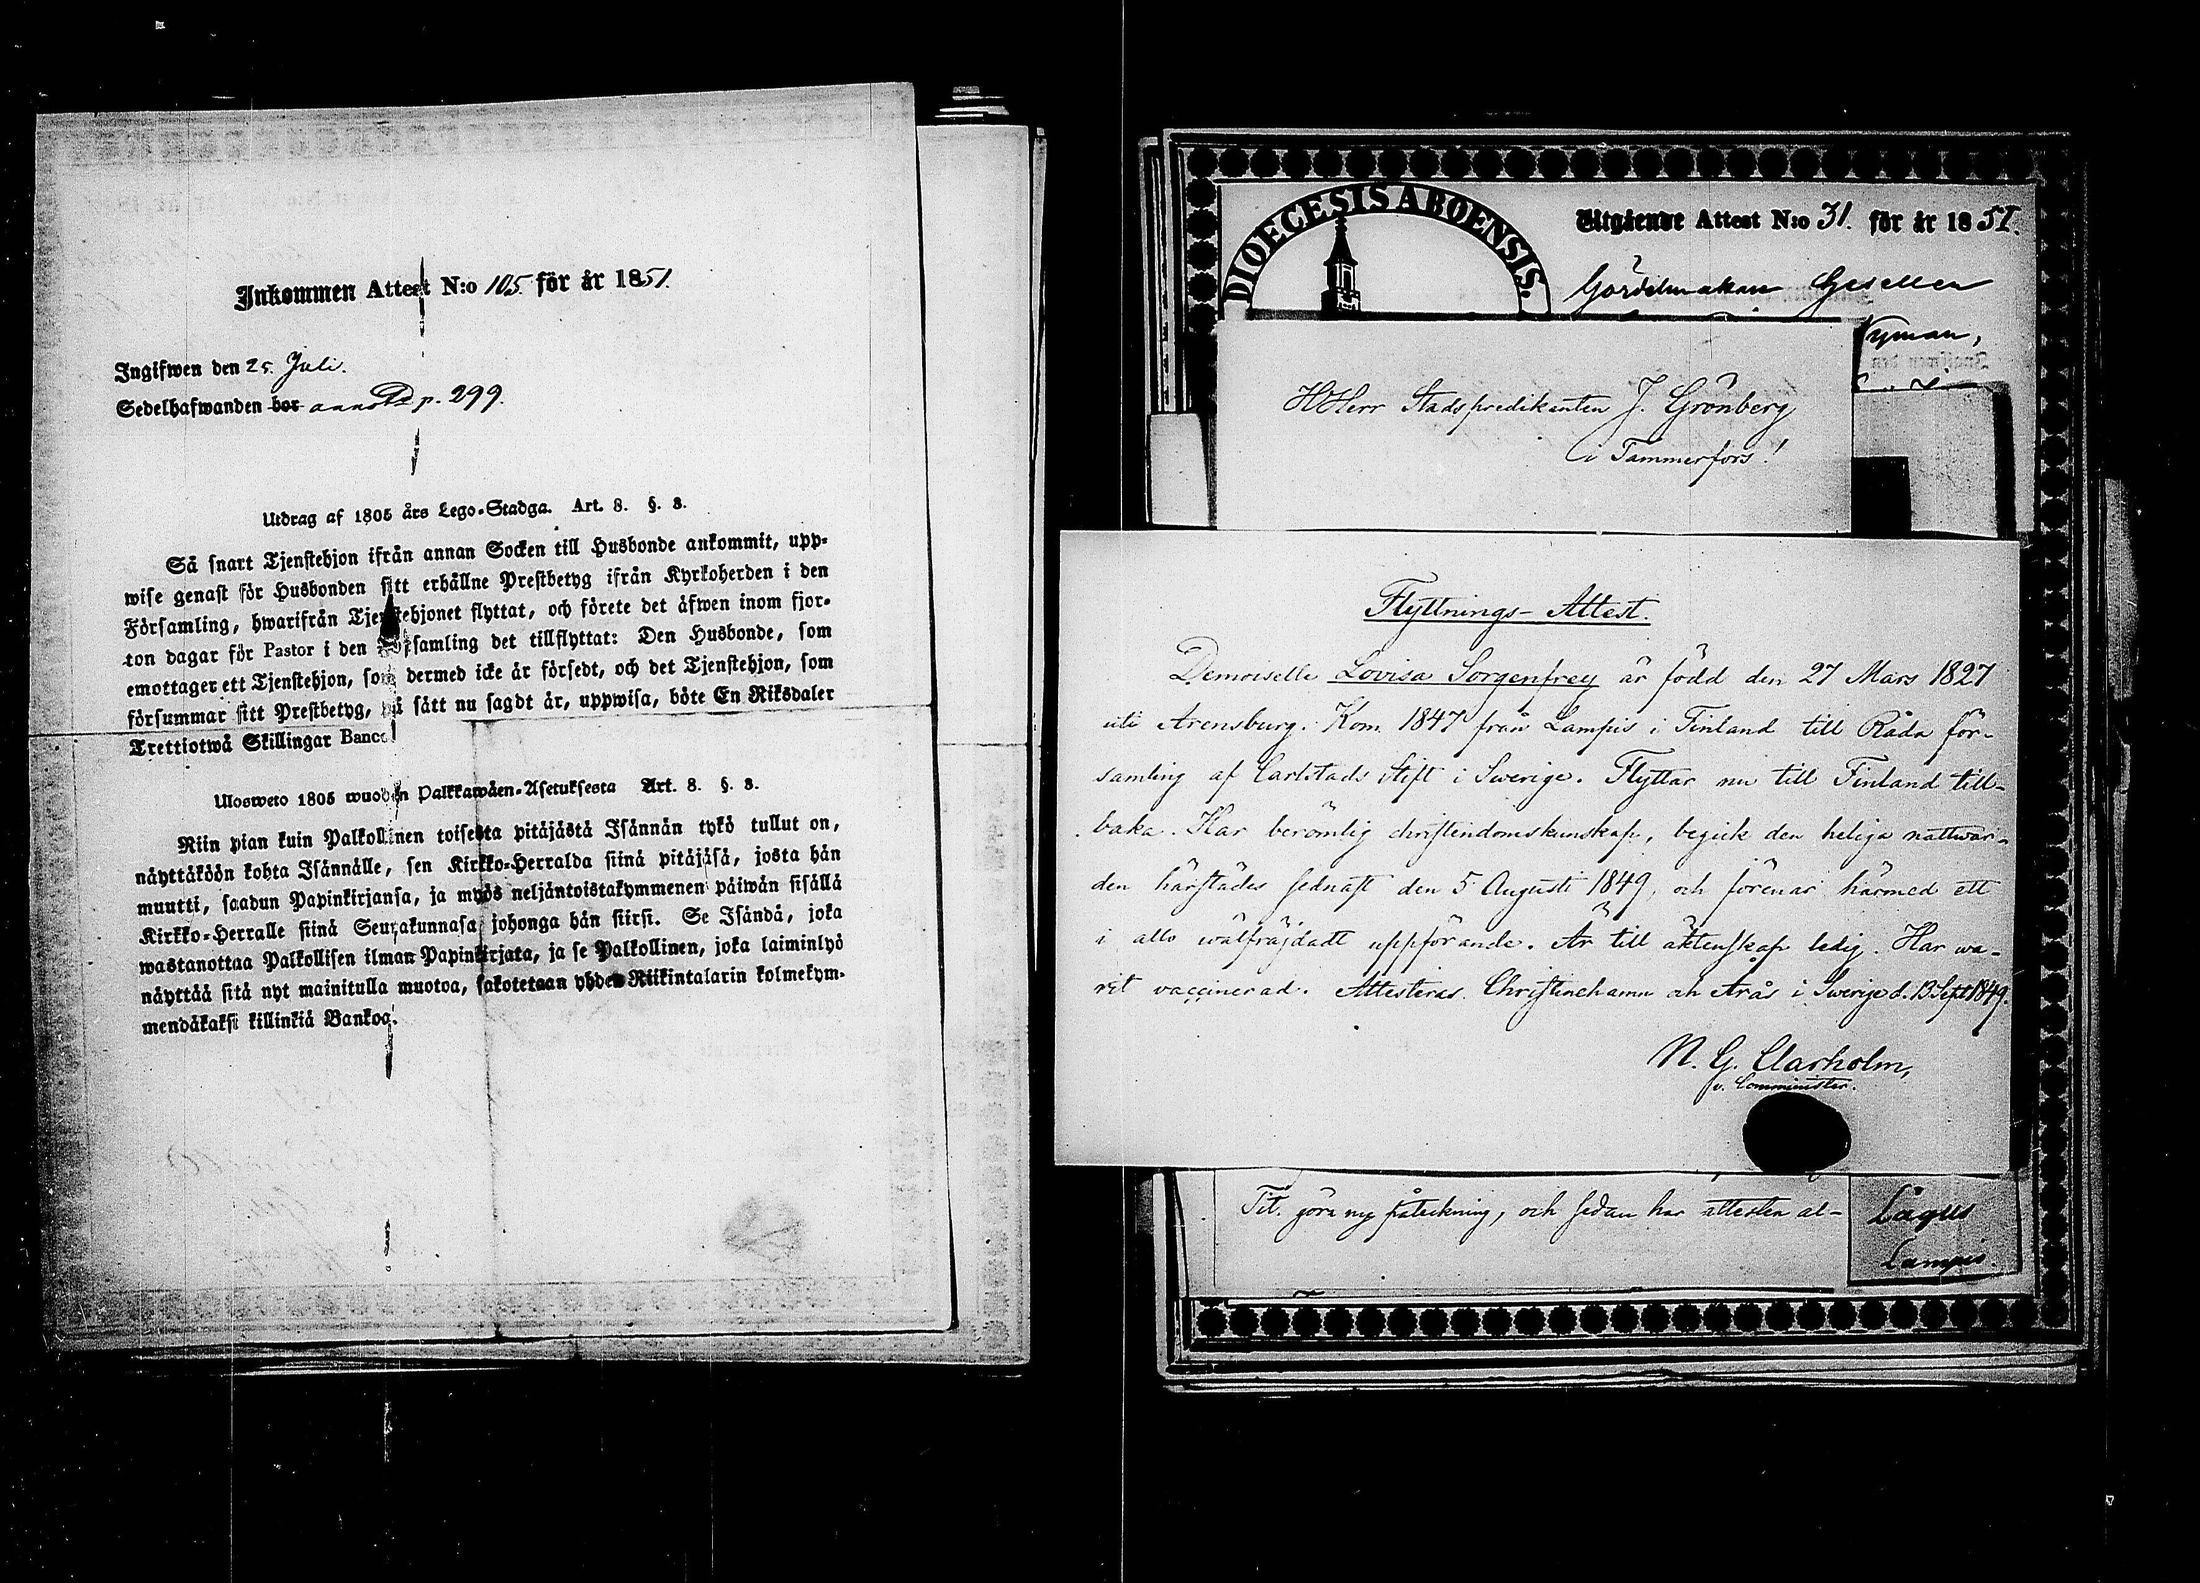 Inkommen Attest N:o 105 för år 1851.
Ingifwen den 25. Juli.
Sedelhafwanden bor p. 299.
Utdrag af 1805 års Lego-Stadga. Art. 8. §. 3.
Så snart Tjenstehjon ifrån annan Socken till Husbonde ankommit, upp-
wise genast för Husbonden sitt erhållne Prestbetyg ifrån Kyrkoherden i den
Församling, hwarifrån Tjenstehjonet flyttat, och förete det äfwen inom fjor-
ton dagar för Pastor i den Församling det tillflyttat: Den Husbonde, som
emottager ett Tjenstehjon, som dermed icke är försedt, och det Tjenstehjon, som
försummar sitt Prestbetyg, på sätt nu sagdt är, uppwisa, böte En Riksdaler
Trettiotwå Skillingar Banco.
Ulosweto 1805 wuoden Palkkawäen-Asetuksesta Art. 8. §. 3.
Niin pian kuin Palkollinen toisesta pitäjästä Isännän tykö tullut on,
näyttäköön kohta Isännälle, sen Kirkko-Herralda siinä pitäjäsä, josta hän
muutti, saadun Papinkirjansa, ja myös neljäntoistakymmenen päiwän sisällä
Kirkko-Herralle siinä Seurakunnasa johonga hän siirsi. Se Isändä, joka
wastanottaa Palkollisen ilman Papinkirjata, ja se Palkollinen, joka laiminlyö
näyttää sitä nyt mainitulla muotoa, sakotetaan yhden Riikintalarin kolmekym-
mendäkaksi killinkiä Bankoa.
DIOECESIS ABOENSIS.
Utgående Attest N:o 31. för år 1851.
Gördelmakare Gesellen
Nyman,
HHerr Stadspredikanten J. Grönberg
i Tammerfors!
Flyttnings-Attest.
Demoiselle Lovisa Sorgenfrey är född den 27 Mars 1827
uti Arensburg. Kom 1847 från Lampis i Finland till Råda för-
samling af Carlstads Stift i Swerige. Flyttar nu till Finland till-
baka. Har berömlig christendomskunskap, begick den heliga nattwar-
den härstädes sednast den 5 Augusti 1849, och förenar härmed ett
i allo wälfräjdadt uppförande. Är till äktenskap ledig. Har wa-
rit vaccinerad. Attesteras. Christinehamn och Arås i Swerige d. 13 Sept 1849.
N. G. Clarholm,
v. Comminister.
Tit. göra ny påteckning, och sedan har attesten al-
Lagus
Lampis.